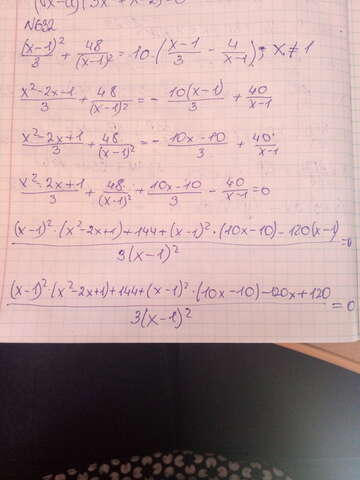 (x-1)(3x²+x-2)=0
№632
(x-1)²/3 + 48/(x-1)² = 10·(x-1/3 - 4/x-1); x≠1
x²-2x-1/3 + 48/(x-1)² = - 10(x-1)/3 + 40/x-1
x²-2x+1/3 + 48/(x-1)² = - 10x-10/3 + 40/x-1
x²-2x+1/3 + 48/(x-1)² + 10x-10/3 - 40/x-1 = 0
(x-1)²·(x²-2x+1)+144+(x-1)²·(10x-10)-120(x-1)/3(x-1)² = 0
(x-1)²·(x²-2x+1)+144+(x-1)²·(10x-10)-120x+120/3(x-1)² = 0